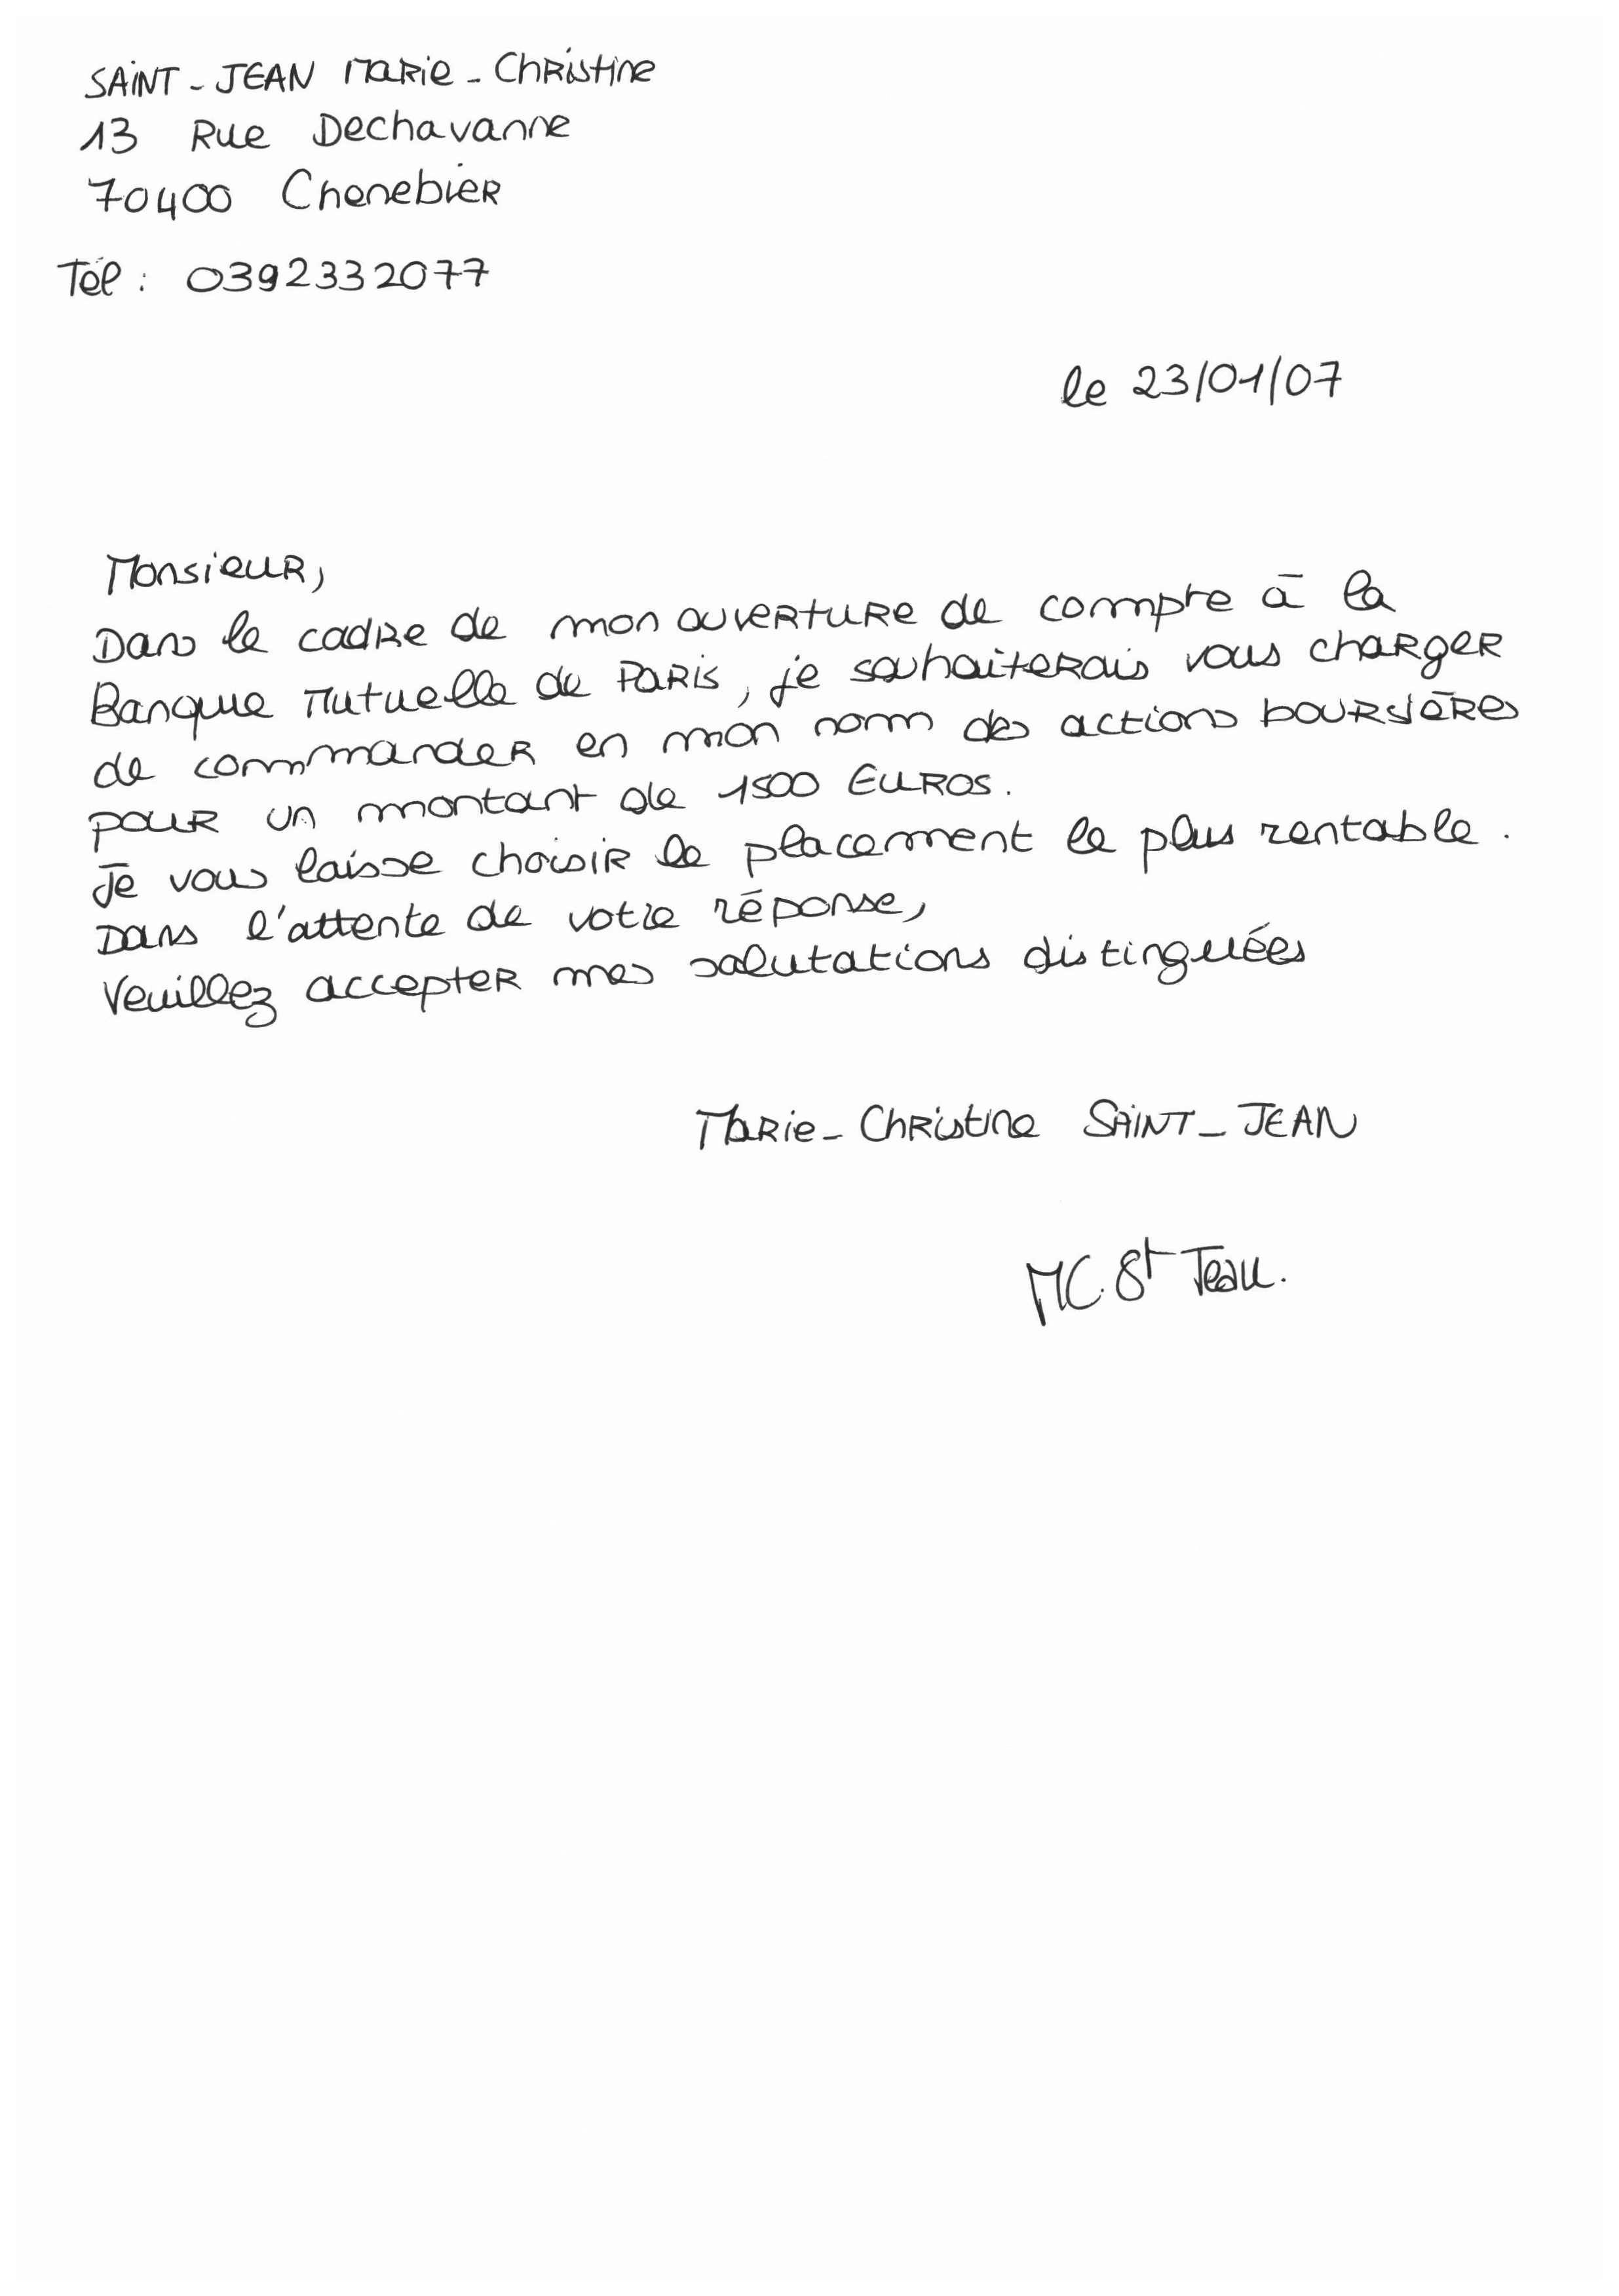 SAINT-JEAN Marie-Christine
13 Rue Dechavanne
70400 Chenebier
Tél : 0392332077
le 23/01/07
Monsieur,
Dans le cadre de mon ouverture de compte à la
Banque Mutuelle de PARIS, je souhaiterais vous charger
de commander en mon nom des actions boursières
pour un montant de 1500 Euros.
Je vous laisse choisir le placement le plus rentable.
Dans l'attente de votre réponse,
Veuillez accepter mes salutations distinguées
Marie-Christine SAINT-JEAN
MC. St Jean.